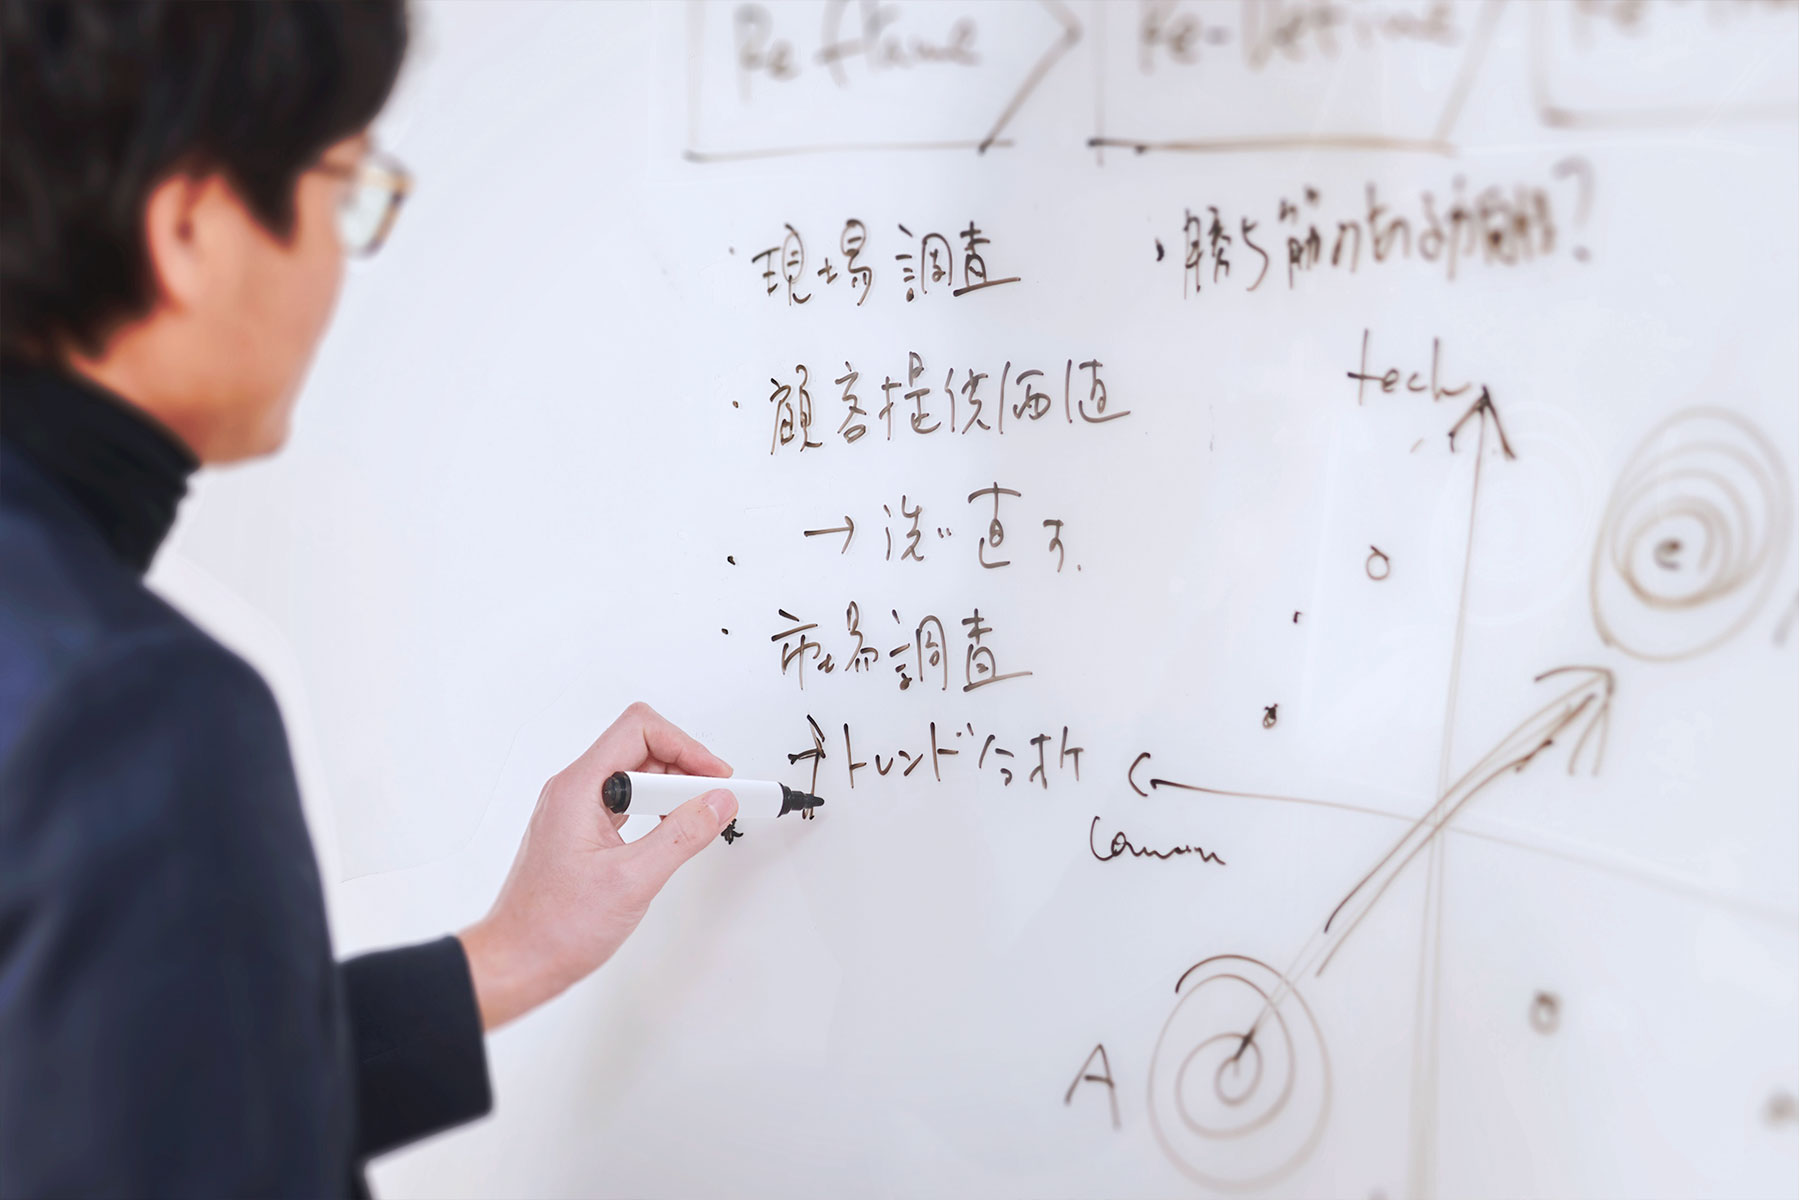 Reflame
Re-Define
・現場調査
・顧客提供価値
→洗い直す.
・市場調査
→トレンド分析
・勝ち筋の
tech
e
A